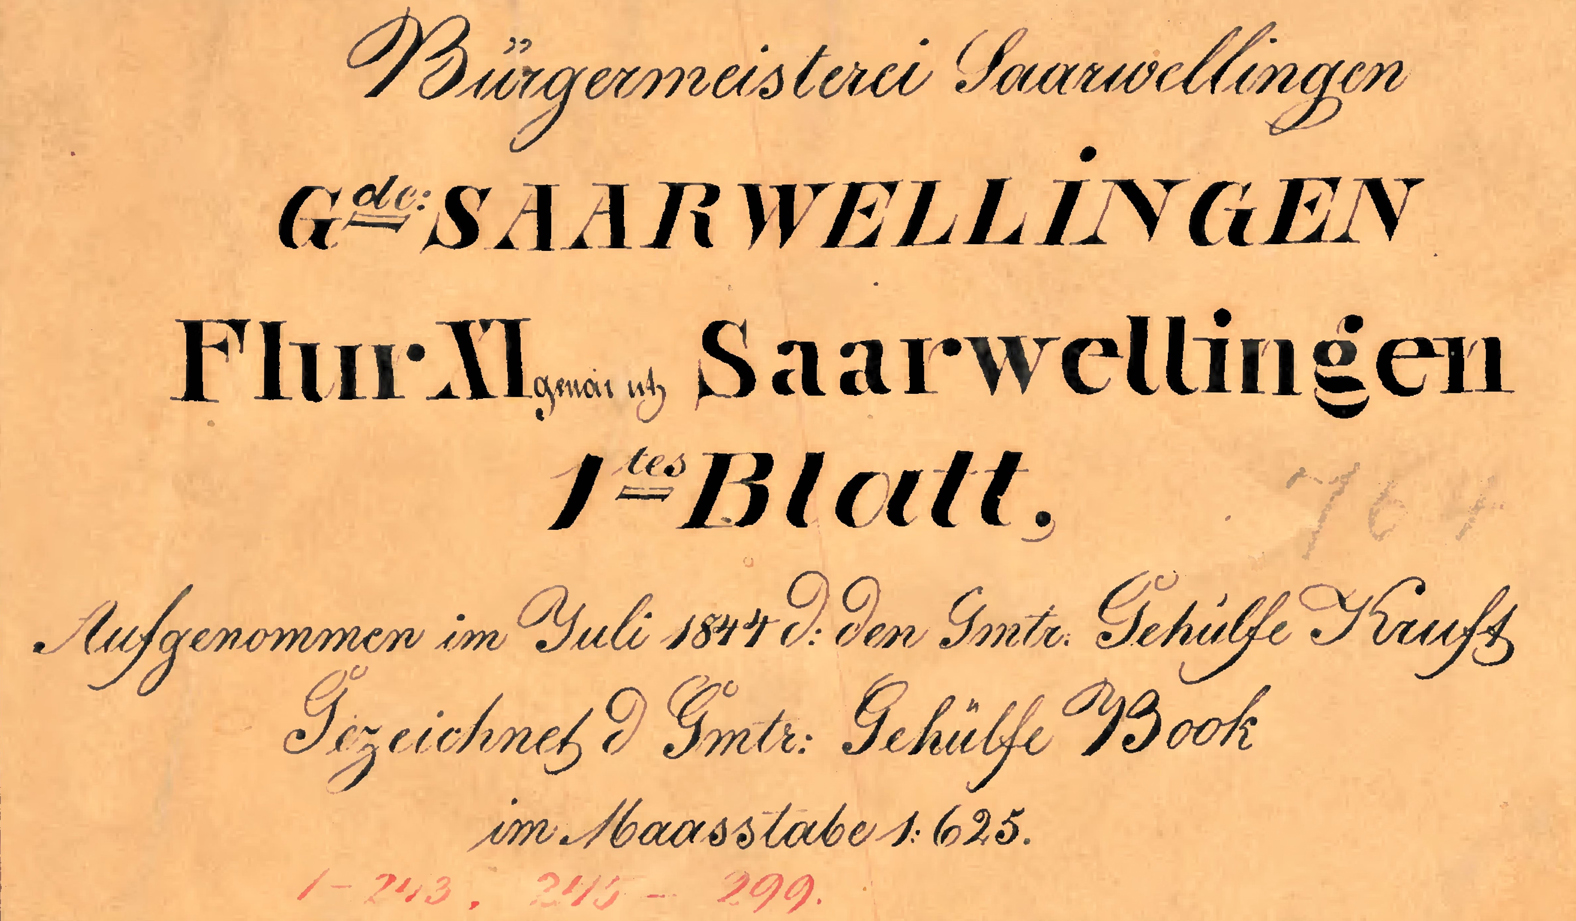 Bürgermeisterei Saarwellingen
Gde: SAARWELLINGEN
Flur XI genannt Saarwellingen
1tes Blatt.
764
Aufgenommen im Juli 1844 d: den Gmtr. Gehülfe Kruft
Gezeichnet d Gmtr: Gehülfe Book
im Maasstabe 1:625.
1-243, 245 - 299.